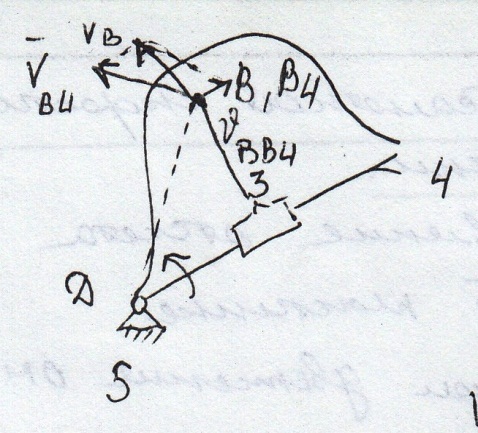 V B
V̅ B4
B, B4
V BB4
3
4
D
5